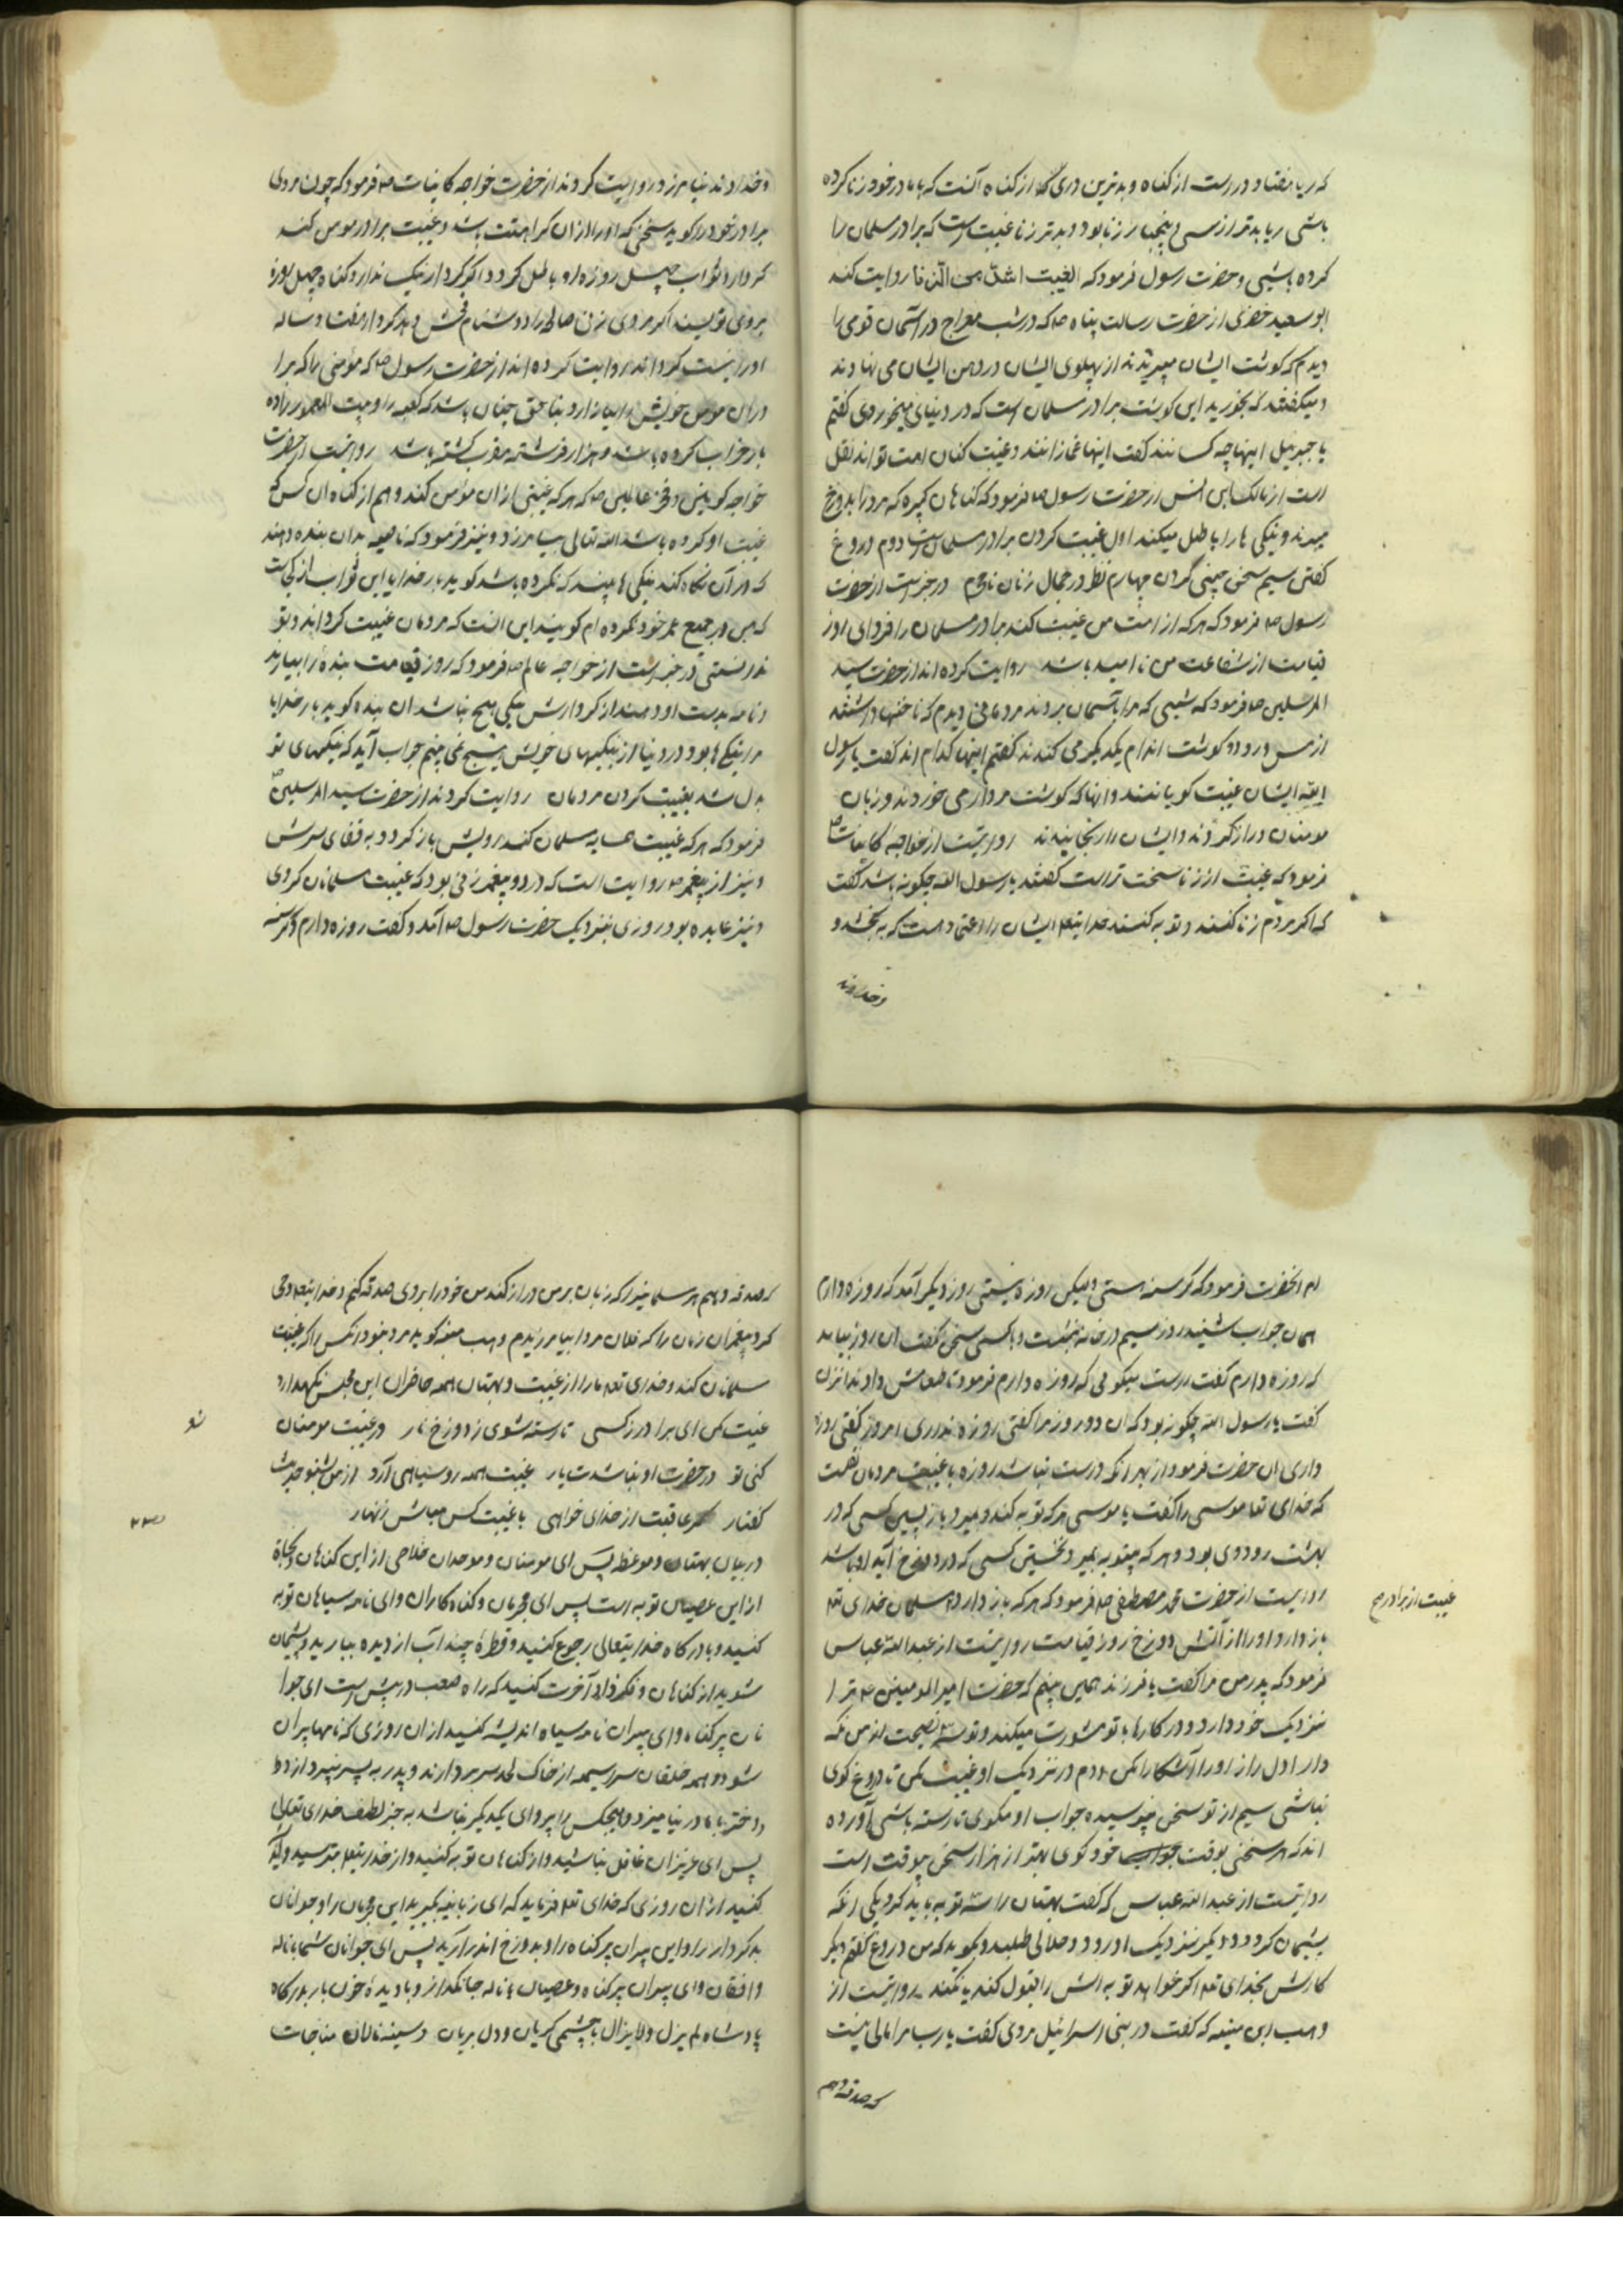 که ریا هفتاد در است از گناه و بدترین دری از گناه آنست که با مادر خود زنا کرده
باشی ریا بدتر از سی و پنج بار زنا بود و بدتر زنا غیبت است که برادر مسلمان را
کرده باشی و حضرت رسول فرمود که الغیبت اشد من الزنا روایت کند
ابو سعید خضری از حضرت رسالت پناه صلم که در شب معراج در آسمان قومی را
دیدم که گوشت ایشان میبریدند از پهلوی ایشان در دهن ایشان می نهادند
و میگفتند که بخورید این گوشت برادر مسلمان است که در دنیا می میخوردی گفتم
یا جبرئیل اینها چه کسانند گفت اینها غمازانند و غیبت کنان امت تواند نقل
است از مالک ابن انس از حضرت رسول صلم فرمود که گناهان کبیره که مرد را بدوزخ
میبرند و نیکی ها را باطل میکند اول غیبت کردن برادر مسلمان است دوم دروغ
گفتن سیم سخن چینی کردن چهارم نظر در جمال زنان نامحرم در خبر است از حضرت
رسول صلم فرمود که هرکه از امت من غیبت کند برادر مسلمان را فردای روز
قیامت از شفاعت من ناامید باشد روایت کرده اند از حضرت سید
المرسلین صلم فرمود که شبی که مرا بآسمان بردند مردمانی دیدم که ناخنها داشتند
از مس و رو و گوشت اندام یکدیگر می کندند گفتم اینها کدام اند گفت یا رسول
الله ایشان غیبت گویانند و آنها که گوشت مردار می خوردند و زبان
مومنان دراز کردند و ایشان را رنجانیدند روایتست از خواجه کاینات ص
فرمود که غیبت از زنا سخت تر است گفتند یا رسول الله چگونه باشد گفت
که اگر مردم زنا کنند و توبه کنند خدایتعلم ایشان را راعتی دهست که به بخشد و
و خداوند
و خداوند نیامرزد روایت کردند از حضرت خواجه کاینات صلم فرمود که چون مردی
برادر خود را گوید سخنی که او را از آن کراهت باشد و غیبت برادر مومن کند
کردار و ثواب چهل روزه او باطل گردد و اگر کردار نیک ندارد گناه چهل روزه
بروی نویسند اگر مردی زن صالح را دشنام فحش دهد کردار هفتاد ساله
او را نیست گرداند روایت کرده اند از حضرت رسول صلم که مومنی را که برا
در آن مومن خویش را بیازارد بناحق چنان باشد که کعبه را و بیت المعمور را ده
بار خراب کرده باشد و هزار فرشته مقرب کشته باشد روایتست از حضرت
خواجه کونین و فخر عالمین صلم که هرکه غیبتی از آن مومن کند و هم از گناه آن کس که
غیبت او کرده باشد الله تعالی بیامرزد و نیز فرمود که نامه بدان بنده دهند
که در آن نگاه کند نیکی ها بیند که نکرده باشد گوید بار خدایا این ثواب از کجاست
که من در جمیع عمر خود نکرده ام گویند این آنست که مردمان غیبت کردند و تو
ندانستی در خبر است از خواجه عالم صلم فرمود که روز قیامت بنده را بیارند
و نامه بدست او دهند از کردارش نیکی هیچ نباشد آن بنده گوید بار خدایا
مرا نیکی ها بود در دنیا از نیکیهای خویش هیچ نمی بینم جواب آید که نیکیهای تو
بدل شد بغیبت کردن مردمان روایت کردند از حضرت سید المرسلین ص
فرمود که هرکه غیبت همسایه مسلمان کند رویش باز گردد به قفای سرش
و نیز از پیغمبر صلم روایت است که در دو پیغمبر زنی بود که غیبت مسلمانان کردی
و نیز عابده بود روزی بنزدیک حضرت رسول صلم آمد و گفت روزه دارم و گرسنه
ام آنحضرت فرمود که گرسنه هستی ولیکن روزه نیستی روز دیگر آمد که روزه دارم
همان جواب شنید روز سیم در خانه بنشست و با کسی سخن نگفت آن روز بیامد
که روزه دارم گفت راست میگوئی که روزه دارم فرمود تا طعامش دادند آن زن
گفت یا رسول الله چگونه بود که آن دو روز مرا گفتی روزه نداری امروز گفتی روزه
داری آن حضرت فرمود از بهر آنکه درست نباشد روزه با غیبت مردمان نقلست
که خدای تعا موسی را گفت یا موسی هرکه توبه کند و میرد باز پسین کسی که در
بهشت رود وی بود و هرکه بیتوبه بمیرد نخستین کسی که در دوزخ آید او باشد
روایت از حضرت محمد مصطفی صلم فرمود که هرکه باز دارد مسلمان خدای تعلم
باز دارد او را از آتش دوزخ روز قیامت روایتست از عبدالله عباس
فرمود که پدر من مرا گفت یا فرزند همی بینم که حضرت امیر المومنین عمر ترا
نزدیک خود دارد و در کارها با تو مشورت میکند و تو سه نصیحت از من نگه
دار اول راز او را آشکارا مکن دوم در نزدیک او غیبت مکن تا دروغ گوی
نباشی سیم از تو سخن نپرسیده جواب او مگوی تا رسته باشی آورده
اند که هر سخنی بوقت جواب خود گوی بهتر از هزار سخن بیوقت است
روایتست از عبدالله عباس که گفت بهتان را سه توبه باید کرد یکی آنکه
پشیمان گردد و دیگر نزدیک او رود و حلالی طلبد و بگوید که من دروغ گفتم دیگر
کارش بخدای تعلم اگر خواهد توبه اش را قبول کند یا نکند روایتست از
وهب ابن منبه که گفت در بنی اسرائیل مردی گفت یا رب مرا مالی نیست
که صدقه دهم
غیبت از برادر
که صدقه دهم هر مسلمانی را که زبان بر من دراز کند من خود را بروی صدقه کنم و خدایتعلم وحی
کرد پیغمبر آن زمان را که فلان مرد را بیامرزیدم وهب منبه گوید مرد نبود آنکس را که غیبت
مسلمانان کند و خدای تعلم ما را از غیبت و بهتان همه حاضران این مجلس نگهدارد
غیبت مکن ای برادر ز کسی تا رسته شوی ز دوزخ نار در غیبت مومنان
کنی تو در حضرت او نباشدت یار غیبت همه رو سیاهی آرد از من شنو حدیث
گفتار گر عاقبت از خدای خواهی با غیبت کس مباش زنهار
در بیان بهتان و موعظه پس ای مومنان و موحدان خلاصی از این گناهان و نجاة
از این عصیان توبه است پس ای مجرمان و گناه کاران و ای نامه سیاهان توبه
کنید و با درگاه خدایتعالی رجوع کنید و قطره چند آب از دیده ببارید و پشیمان
شوید از گناهان و فکر زاد آخرت کنید که راه صعب در پیش است ای جوا
نان پر گناه و ای پیران نامه سیاه اندیشه کنید از آن روزی که نامها پران
شود و همه خلقان سراسیمه از خاک لحد سر بردارند و پدر به پسر نپردازد و
دختر با مادر نیامیزد و هیچکس را پروای یکدیگر نباشد به جز لطف خدای تعالی
پس ای عزیزان غافل نباشید و از گناهان توبه کنید و از خدایتعلم بترسید و یاد
کنید از آن روزی که خدای تعلم فرماید که ای زبانیه بگیرید این مجرمان را و جوانان
بد کردار را و این پیران پر گناه را و بدوزخ اندر آرید پس ای جوانان شما با ناله
و افغان و ای پیران پر گناه و عصیان با ناله جانگداز و با دیده خون بار بدرگاه
پادشاه لم یزل و لا یزال با چشمی گریان و دل بریان و سینه نالان مناجات